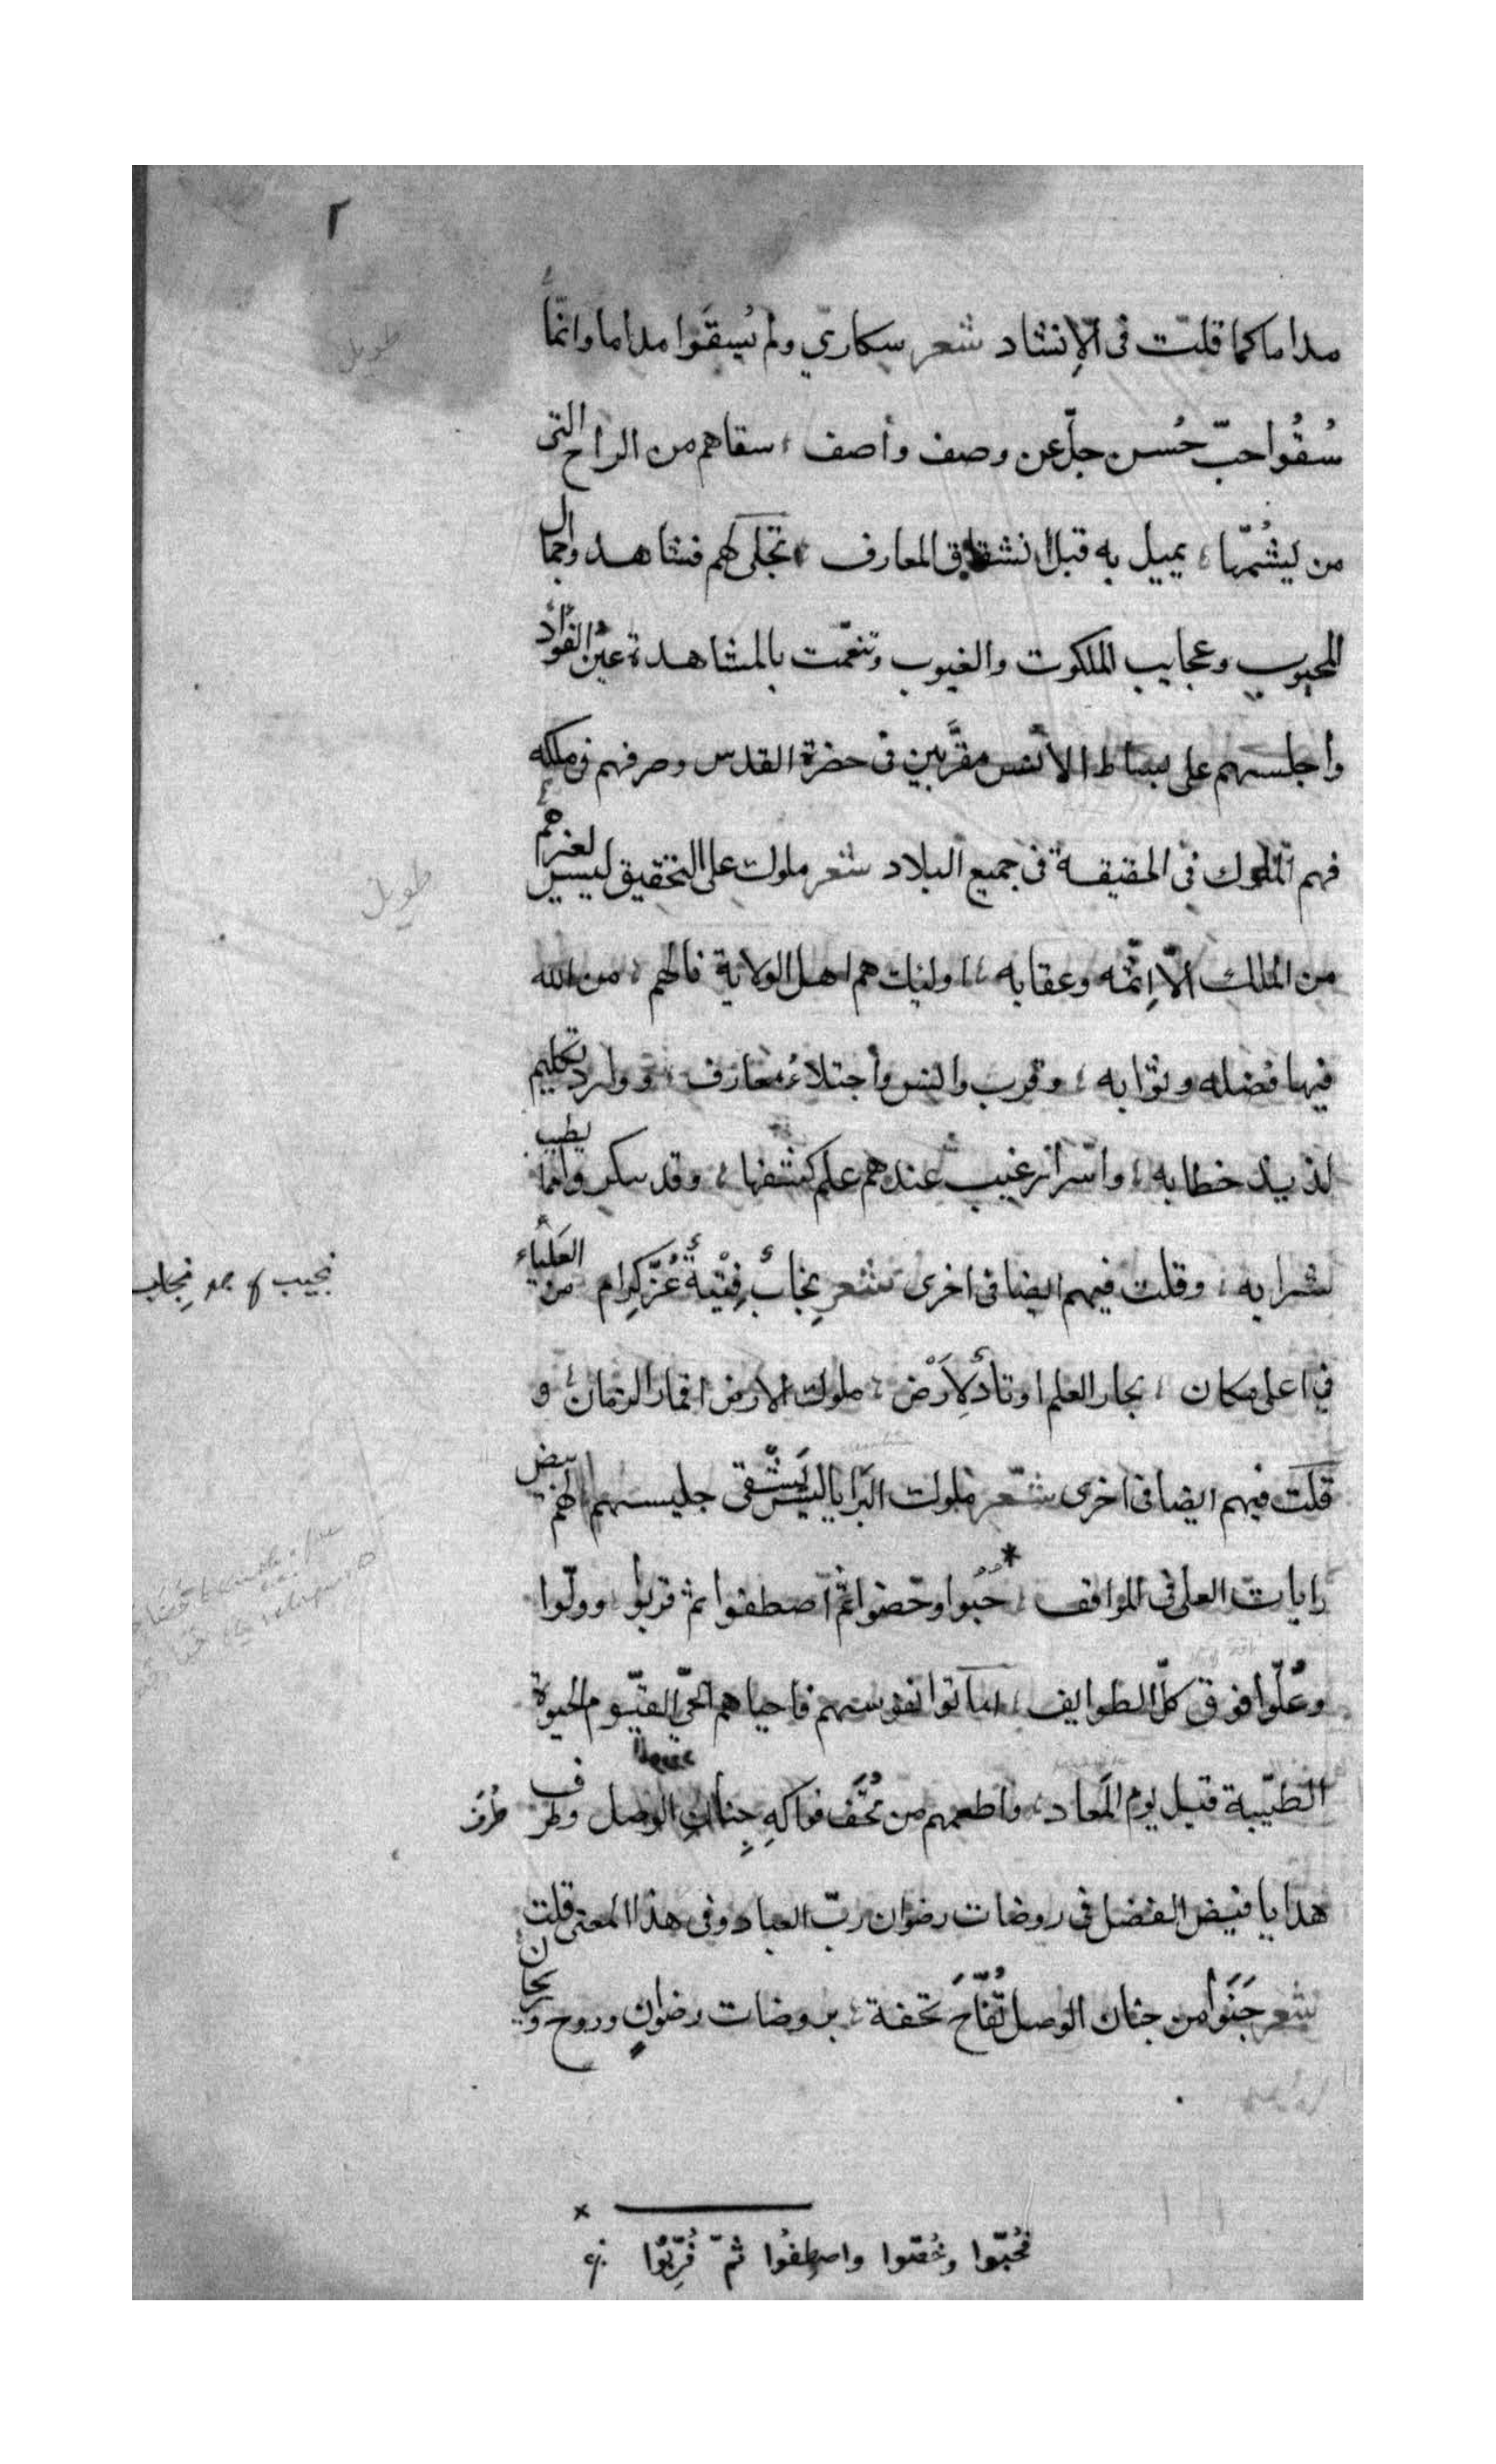 ٢
مداما كما قلت فى الإنشاد شعر سكارى ولم يُسقَوا مداما وانّما
طويل
سُقُوا حبّ حُسن جلّ عن وصف وأصف ، سقاهم من الراح التى
من يشُمّها ، يميل به قبل انشقاق المعارف ، تجلى لهم فشاهدوا جمال
المحبوب وعجايب الملكوت والغيوب وتنعّمت بالمشاهدة عين الفؤاد
وأجلسهم على بساط الأنس مقرَّبين فى حضرة القدس وصرفهم فى ملكه
فهم الملوك فى الحقيقة فى جميع البلاد شعر ملوك على التحقيق ليس لغيرهم
طويل
من الملك الّا إثمه وعقابه ، اوليك هم اهل الولاية فالهم ، من الله
فيها فضله وثوابه ، وقرب وانس وأجتلاءُ معارف ، ووارد تكليم
لذيذ خطابه ، واسرار غيب عندهم علم كشفها ، وقد سكروا مما يطيب
شرابه ، وقلت فيهم ايضا فى اخرى شعر نِجابٌ فِتْيةٌ غُرٌّ كِرام من العَلياء
نجيب ج نِجاب
في اعلى مكان ، بحار العلم اوتادٌ لِأَرْض ، ملوك الارض اقمار الزمان ، و
قلت فيهم ايضا فى اخرى شعر ملوك البَرايا ليس يَشْقى جليسهم لهم بيض
رايات العلى فى المواقف ، * حُبُوا وخصوا ثمّ اصطفوا ثم قربوا وولّوا
وعُلّوا فوق كلّ الطوايف ، اماتوا نفوسهم فاحياهم الحىّ القيّوم الحيوة
الطيّبة قبل يوم المَعاد ، واطعمهم من تُحَف فواكهِ جِنانِ الوصل وطرف
طُرَف
هدايا فيض الفضل فى روضات رضوان ربّ العباد وفى هذا المعنى قلت
شعر جَنَوا من جنان الوصل تُفّاحَ تحفة ، بروضات رضوانٍ وروح وريحان
× فحُبّوا وخُصّوا واصطِفُوا ثمّ قُرِّبُوا